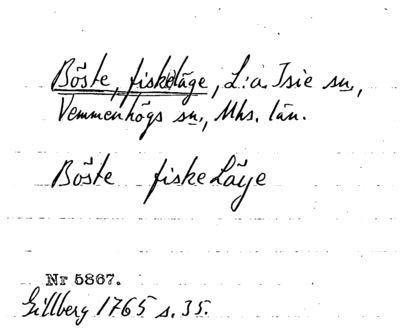 Böste, fiskeläge, L:a Isie sn,
Vemmenhögs sn., Mhs. län.
Böste fiske Läge
Nr 5867.
Gillberg 1765 s. 35.